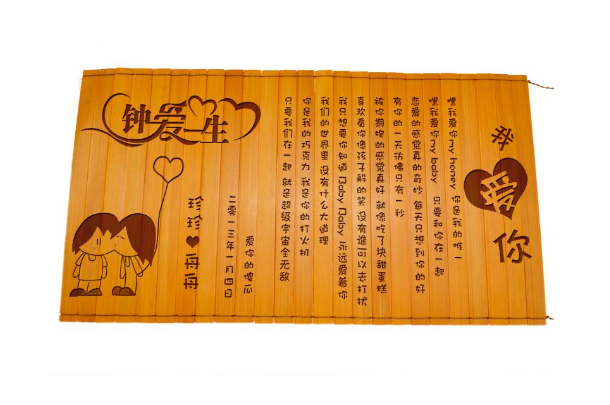 我
爱
你
嘿我爱你my honey 你是我的唯一
嘿我爱你my baby 只要和你在一起
恋爱的感觉真的奇妙 每天只想到你的好
有你的一天仿佛只有一秒
被你拥抱的感觉真好 就像吃了块甜蛋糕
喜欢看你像孩子般的笑 没有谁可以去打扰
我只想要你知道 Baby Baby 永远爱着你
我们的世界里 没有什么大道理
你是我的巧克力 我是你的打火机
只要我们在一起 就是超级宇宙全无敌
爱你的傻瓜
二零一三年一月四日
珍珍❤舟舟
钟爱一生